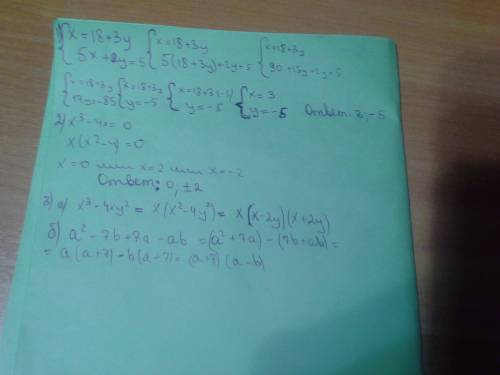 1) { x=18+3y { x=18+3y { x=18+3y
5x+2y=5 5(18+3y)+2y=5 90+15y+2y=5
{ x=18+3y { x=18+3y { x=18+3(-5) { x=3
17y=-85 y=-5 y=-5 y=-5 Ответ: 3; -5
2) x³-4x=0
x(x²-4)=0
x=0 или x=2 или x=-2
Ответ: 0; ±2
3) а) x³-4xy² = x(x²-4y²) = x(x-2y)(x+2y)
б) a²-7b+7a-ab =(a²+7a)-(7b+ab)=
= a(a+7)-b(a+7)= (a+7)(a-b)